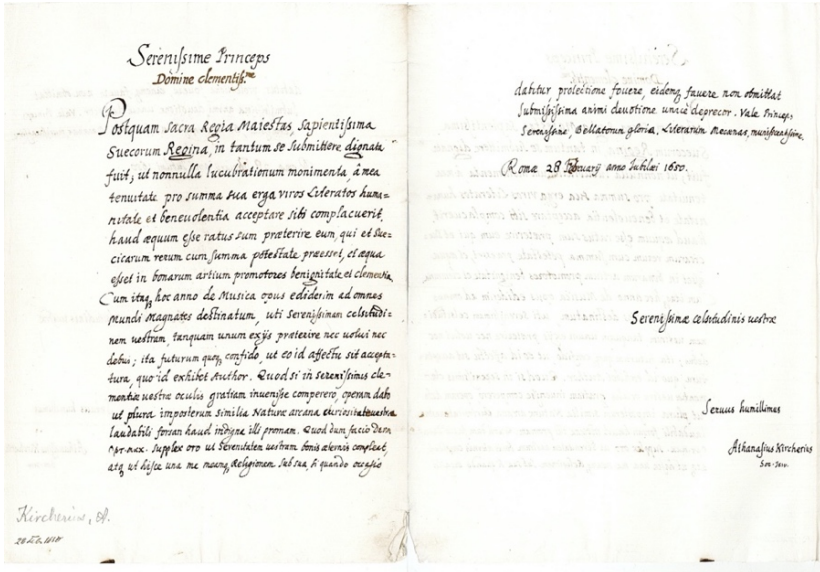 Serenissime Princeps
Domine clementiss.me
Postquam Sacra Regia Maiestas, Sapientissima
Suecorum Regina, in tantum se submittere dignata
fuit; ut nonnulla lucubrationum monimenta, â mea
tenuitate pro summa sua erga viros Literatos huma=
nitate et benevolentia acceptare sibi complacuerit,
haud æquum esse ratus sum præterire eum, qui et Sue=
cicarum rerum cum summa potestate præesset, et æqua
esset in bonarum artium promotores benignitate, et clementia.
Cum itaq hoc anno de Musica opus ediderim ad omnes
Mundi Magnates destinatum, uti Serenissimam Celsitudi=
nem vestram tanquam unum ex ijs præterire nec volui nec
debui; ita futurum quoq confido, ut eo id affectu sit accepta=
tura, quo id exhibet Author. Quod si in serenissimis cle=
mentiæ vestræ oculis gratiam invenisse comperero, operam dabo
ut plura imposterum similia Naturæ arcana curiositate vestra
laudabili forsan haud indigna illi promam. Quod dum facio Deum
supplex oro ut Serenitatem vestram bonis æternis compleat,
atq ut hisce una me meamq Religionem sub sua, si quando occasio
Kircherius, A.
datitur protectione fovere, eidemq favere non obmittat
submississima animi devotione unicè deprecor. Vale Princeps
Serenissime, Bellatorum gloria, Literarum Mecænas, munificentissime.
Romæ 28 anno Iubilæi 1650.
Serenissimæ Celsitudinis vestræ
Servus humillimus
Athanasius Kircherius